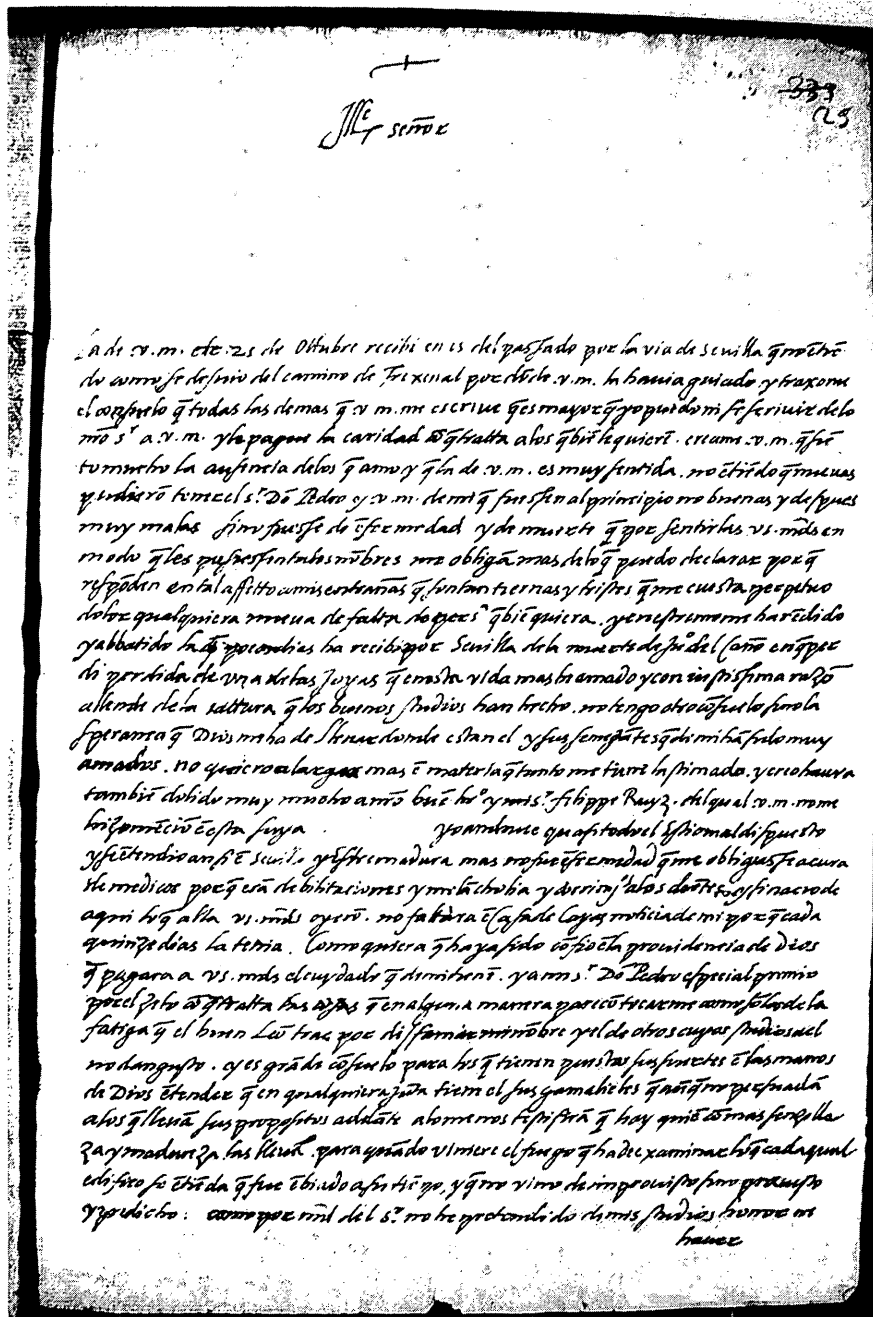 333
29
Ille señor
La de .v.m. de .25 de Ottubre recibi en 15 del passado por la via de Sevilla q̃ no ẽtiẽ
do como se desvio del camino de Frexenal por dõde .v.m. la havia guiado y traxome
el consuelo q̃ todas las demas q̃ v m. me escrive q̃ es mayor q̃ yo puedo ni se scrivir delo
nr̃o s.r a .v.m. y le pague la caridad cõ q̃ tratta a los q̃ biẽ le quierẽ . creame .v.m. q̃ siẽ
to mucho la ausencia delos q̃ amo y q̃ la de .v.m. es muy sentida . no ẽtiẽdo q̃ nuevas
pudierõ tener el s.r Dõ Pedro y .v.m. de mi q̃ fuessen al principio no buenas y despues
muy malas sino fuesse de ẽfermedad y de muerte q̃ por sentirlas vs. m̃ds en
modo q̃ les pusiessen tales nõbres me obligã mas delo q̃ puedo declarar por q̃
respõden en tal affetto a mis entrañas q̃ son tan tiernas y tristes q̃ me cuesta perpetuo
dolor qualquiera nueva de falta de pers.ª q̃ biẽ quiera . y en estremo me ha rẽdido
y abbatido la q̃ pocos dias ha recibi por Sevilla dela muerte de Ju.º del Caño en q̃ per
di perdida de una delas Joyas q̃ en esta vida mas he amado y con iustissima razõ
allende de la q̃ los buenos studios han hecho . no tengo otro cõsuelo sino la
sperança q̃ Dios me ha de llevar donde estan el y sus semejãtes q̃ de mi hã sido muy
amados . no quiero alargar mas ẽ materia q̃ tanto me tiene lastimado . y creo havra
tambiẽ dolido muy mucho a nr̃o buẽ hr.º y mi s.r Filippe Ruyz . del qual .v.m. no me
hizo mẽciõ ẽ esta suya . yo anduve quasi todo el Estio mal dispuesto
y se ẽtendio ansi ẽ Sevilla y Estremadura mas no fue ẽfermedad q̃ me obligasse a cura
de medicos por q̃ erã debilitaciones y melãcholia y y si nacio de
aqui lo q̃ alla vs. m̃ds oyerõ . no faltara ẽ Casa de Çayas noticia de mi por q̃ cada
quinze dias la tenia . Como quiera q̃ haya sido cõfio ẽ la providencia de Dios
q̃ pagara a vs. m̃ds el cuydado q̃ de mi tienẽ . y a mi s.r Dõ Pedro especial premio
por el zelo cõ q̃ tratta las cosas q̃ en alguna manera parecẽ tocarme como son las de la
fatiga q̃ el buen Leõ trae por dissamar mi nõbre y el de otros cuyos studios a el
no dan gusto . y es grãde cõsuelo para los q̃ tienen puestas sus suertes ẽ las manos
de Dios ẽtender q̃ en qualquiera jũta tiene el sus gamalieles q̃ aũ q̃ no persuadã
a los q̃ llevã sus propositos adelãte alomenos testificã q̃ hay quiẽ cõ mas senzille
za y madureza las llevã . para quãdo viniere el fuego q̃ ha de examinar lo q̃ cada qual
edifico se ẽtiẽda q̃ fue ẽbiado a su tiẽpo , y q̃ no vino de improvisto sino previsto
y predicho : como por m̃d del s.r no he pretendido de mis studios honor ni
haver